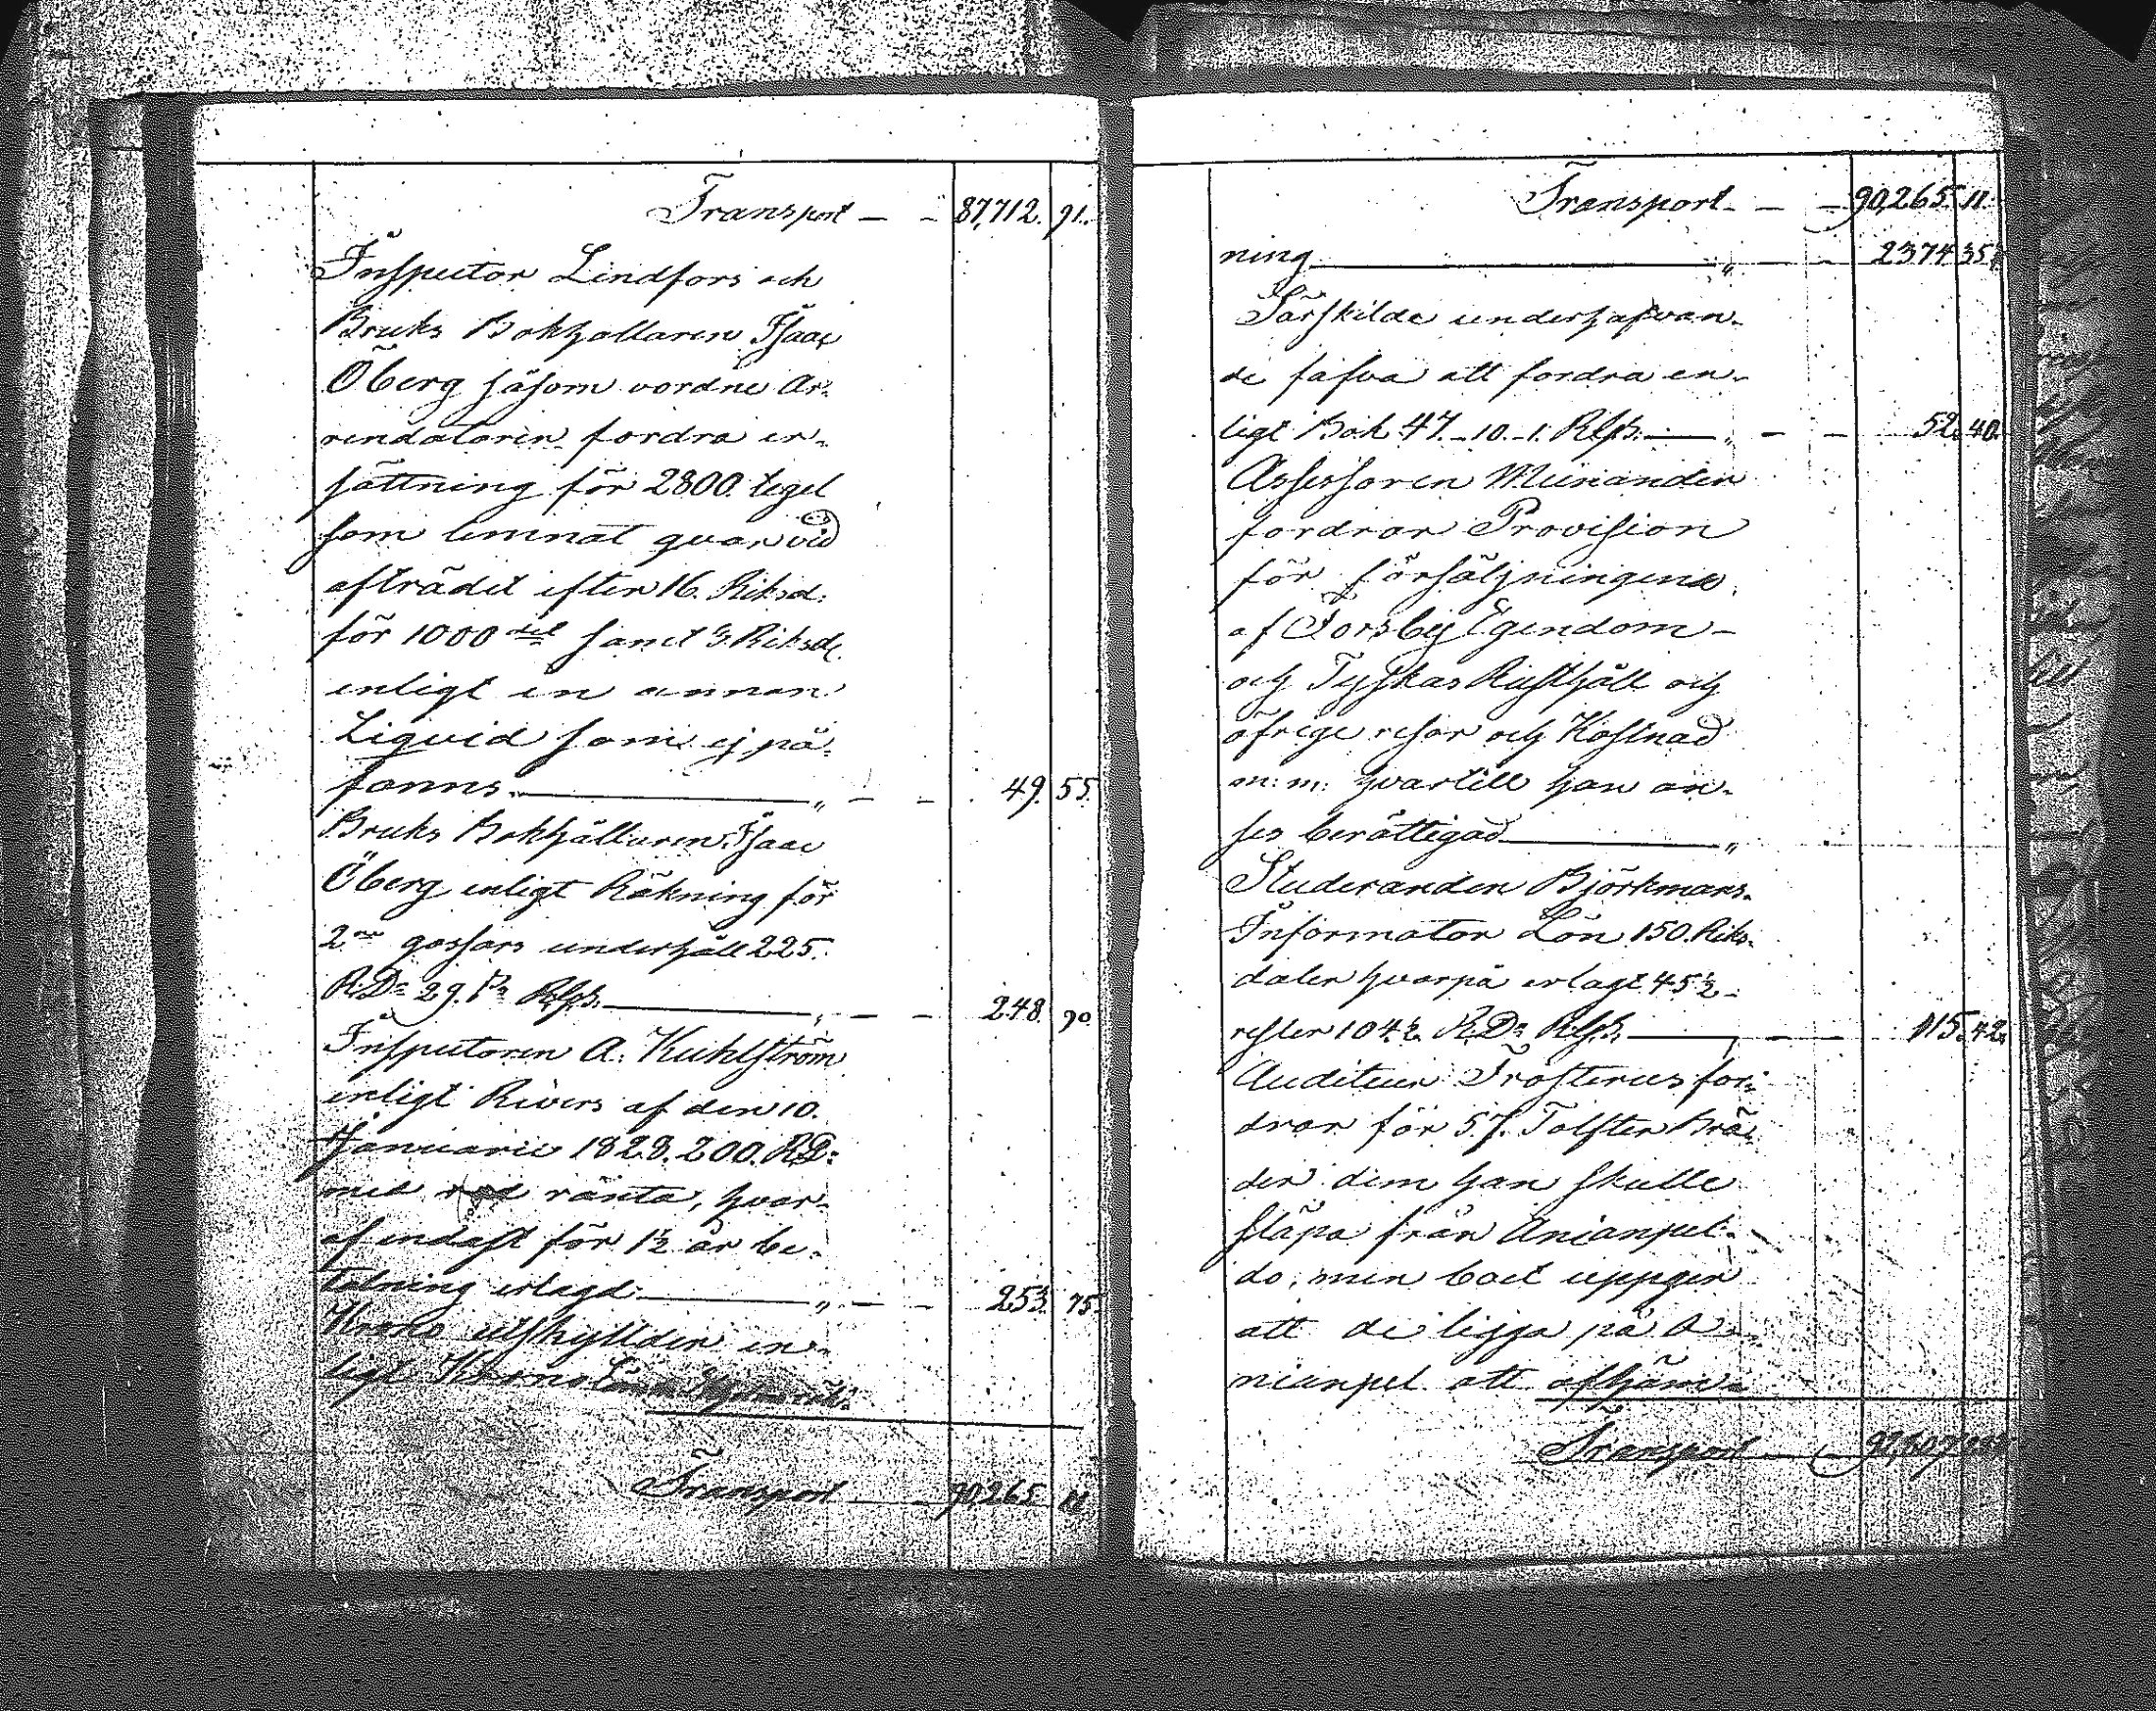 Transport — — 87,712. 91.
Inspector Lindfors och
Bruks Bokhållaren Isaac
Öberg såsom vordne Ar-
rendatorer fordra er-
sättning för 2800. tegel
som lemnat qvar vid
afträdet efter 16. Riksd.
för 1000 det samt 3. Riksd.
enligt en annan
Liqvid som ej på-
fanns. — „ — — 49. 55.
Bruks Bokhållaren Isaac
Öberg enligt Räkning för
2ne gossars underhåll 225.
R:D: 29. Rgs. — „ — — 248. 90
Inspectoren A: Kuhlström
enligt Rivers af den 10.
Januarii 1828. 200. RD:
med ränta, hvar-
af endast för 1½ år be-
talning erlagd — „ — — 253. 75.
Krono utskylder en-
ligt Krono
Transport — — 90,265. 11
Transport — — — 90,265. 11.
ning — „ — — 2374 35½
Särskilde underhafvan-
de hafva att fordra en-
ligt Bok 47. - 10. - 1. Rgs. — „ — — 52. 40.
Assessoren Münanden
fordrar Provision
för försäljningen
af Forsby Egendom
och Tyskas Rusthåll och
öfrige resor och Kostnad
m: m: hvartill han an-
ses berättigad — „
Studeranden Björkmans
Informator Lön 150. Riks-
daler hvarpå erlagt 45½
rester 104½ R:D: Rgs. — „ — — 115. 42.
Auditeur Trosterus for-
drar för 57. Tolfter Brä-
der dem han skulle
släpa från Anianpel-
do, men boet uppger
att de ligga på A-
nianpel. att afhäm-
Transport —